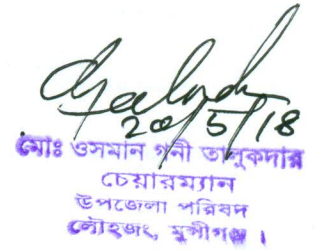 20/5/18
মোঃ ওসমান গনী তালুকদার
চেয়ারম্যান
উপজেলা পরিষদ
লৌহজং, মুন্সীগঞ্জ।